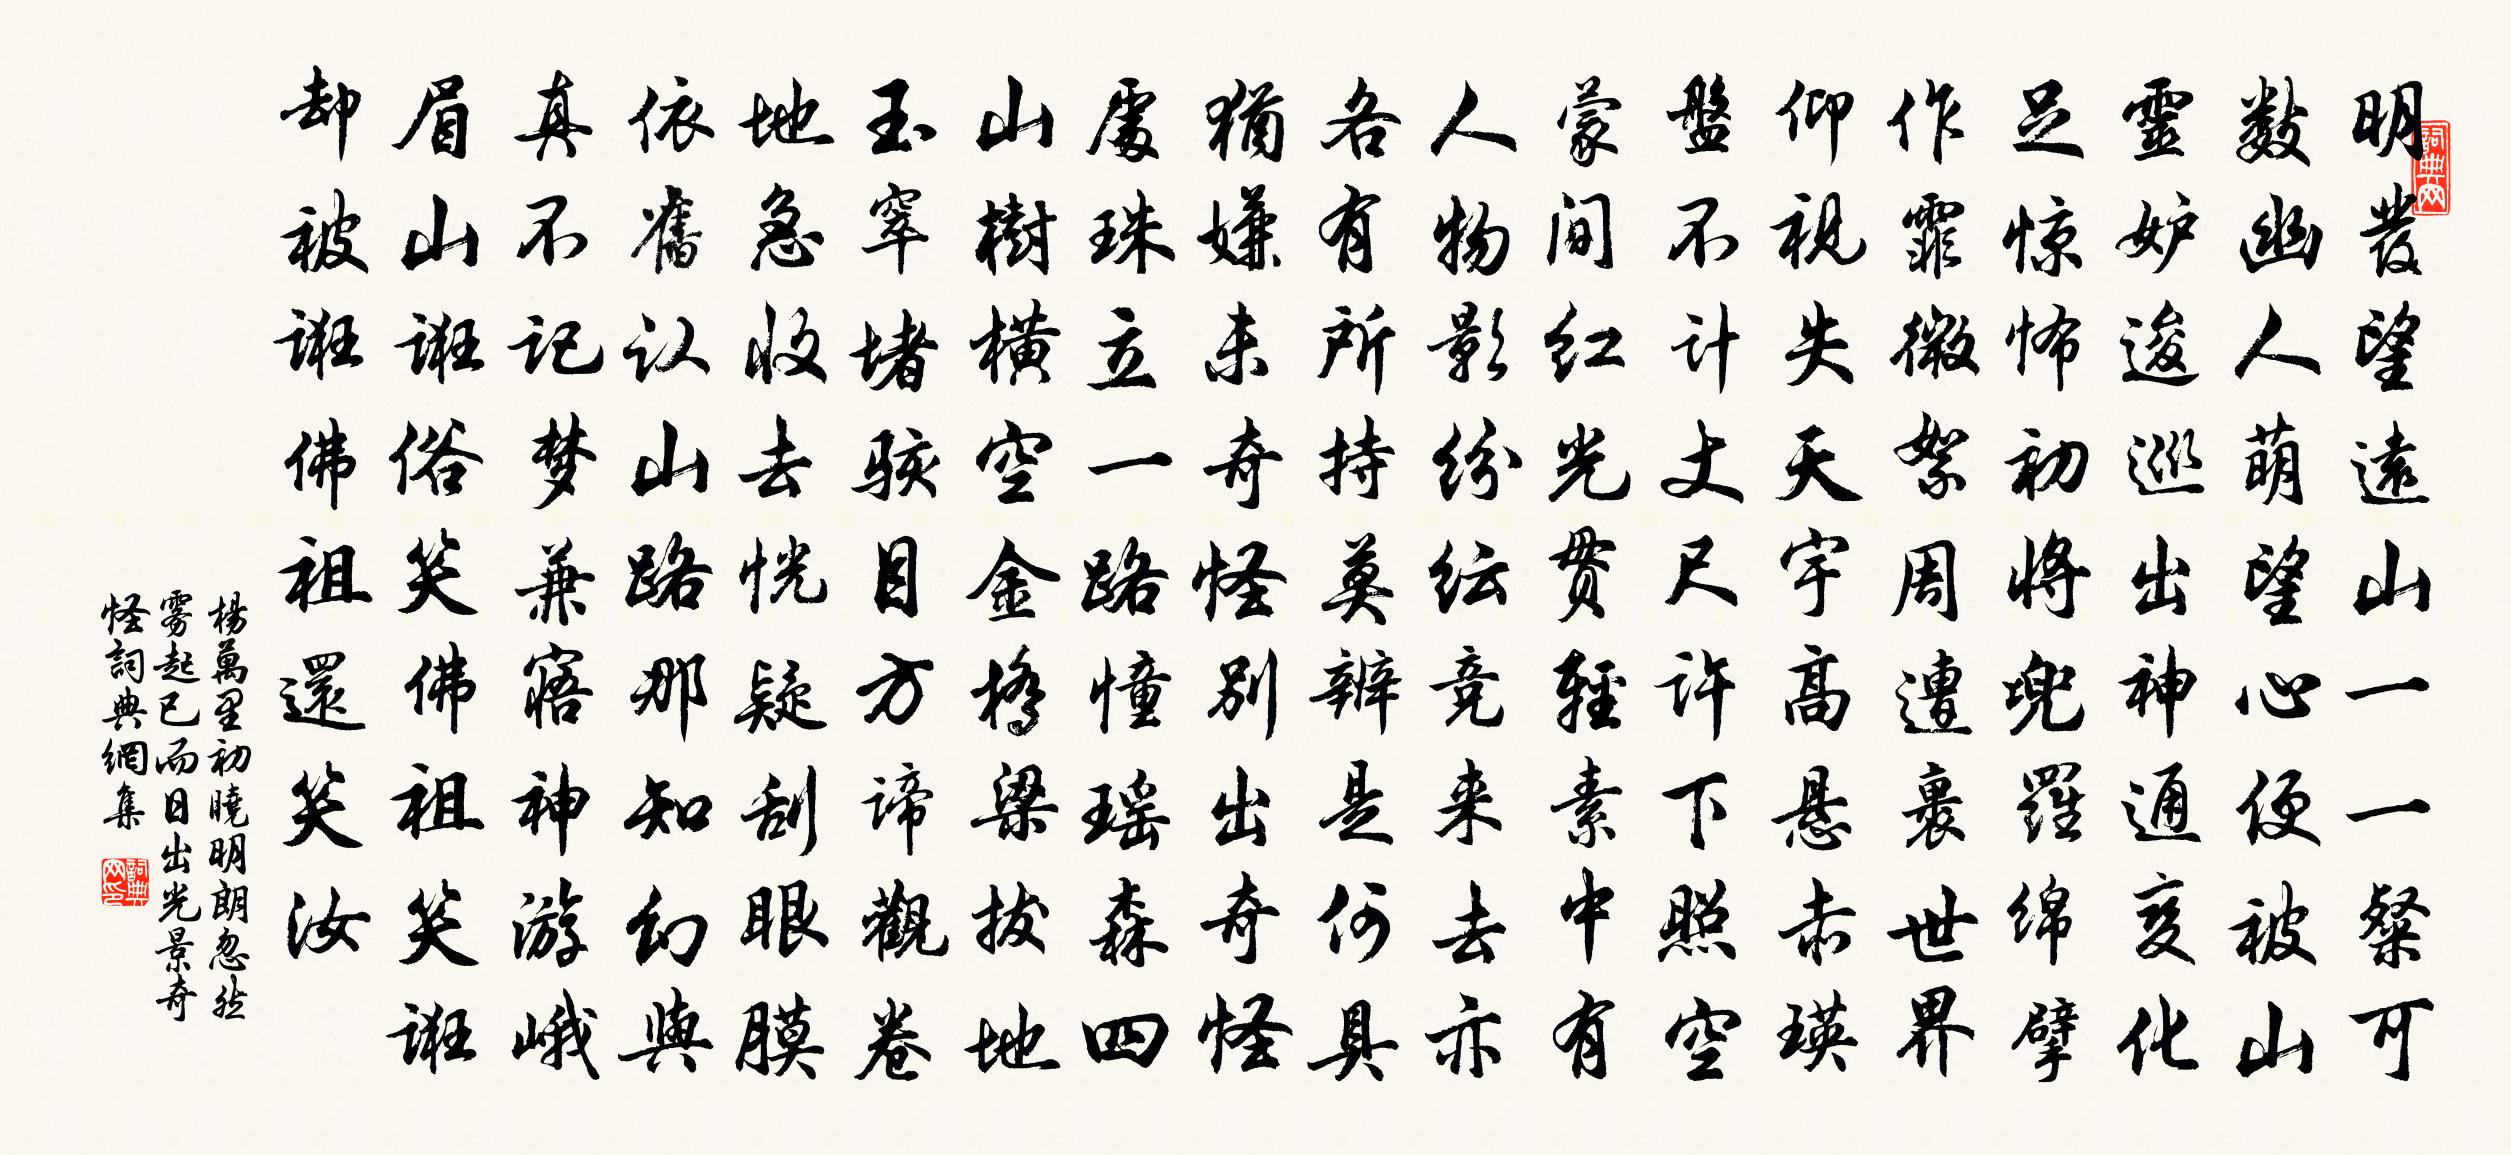 明發望遠山一一粲可
數幽人萌望心便被山
靈妒逡巡出神通变化
足惊怖初將兜羅綿擘
作霏微絮周遭裹世界
仰視失天宇高悬赤瑛
盤不计丈尺许下照空
蒙间红光贯轻素中有
人物影纷纭竞来去亦
各有所持莫辨是何具
猶嫌未奇怪别出奇怪
處珠立一路憧瑶森四
山樹横空金橋梁拔地
玉窣堵骇目方谛觀卷
地急收去恍疑刮眼膜
依舊认山路那知幻與
真不记梦兼寤神游峨
眉山诳俗笑佛祖笑诳
却被诳佛祖還笑汝
楊萬里初曉明朗忽然
雾起已而日出光景奇
怪詞典網集
詞典网
詞典网印